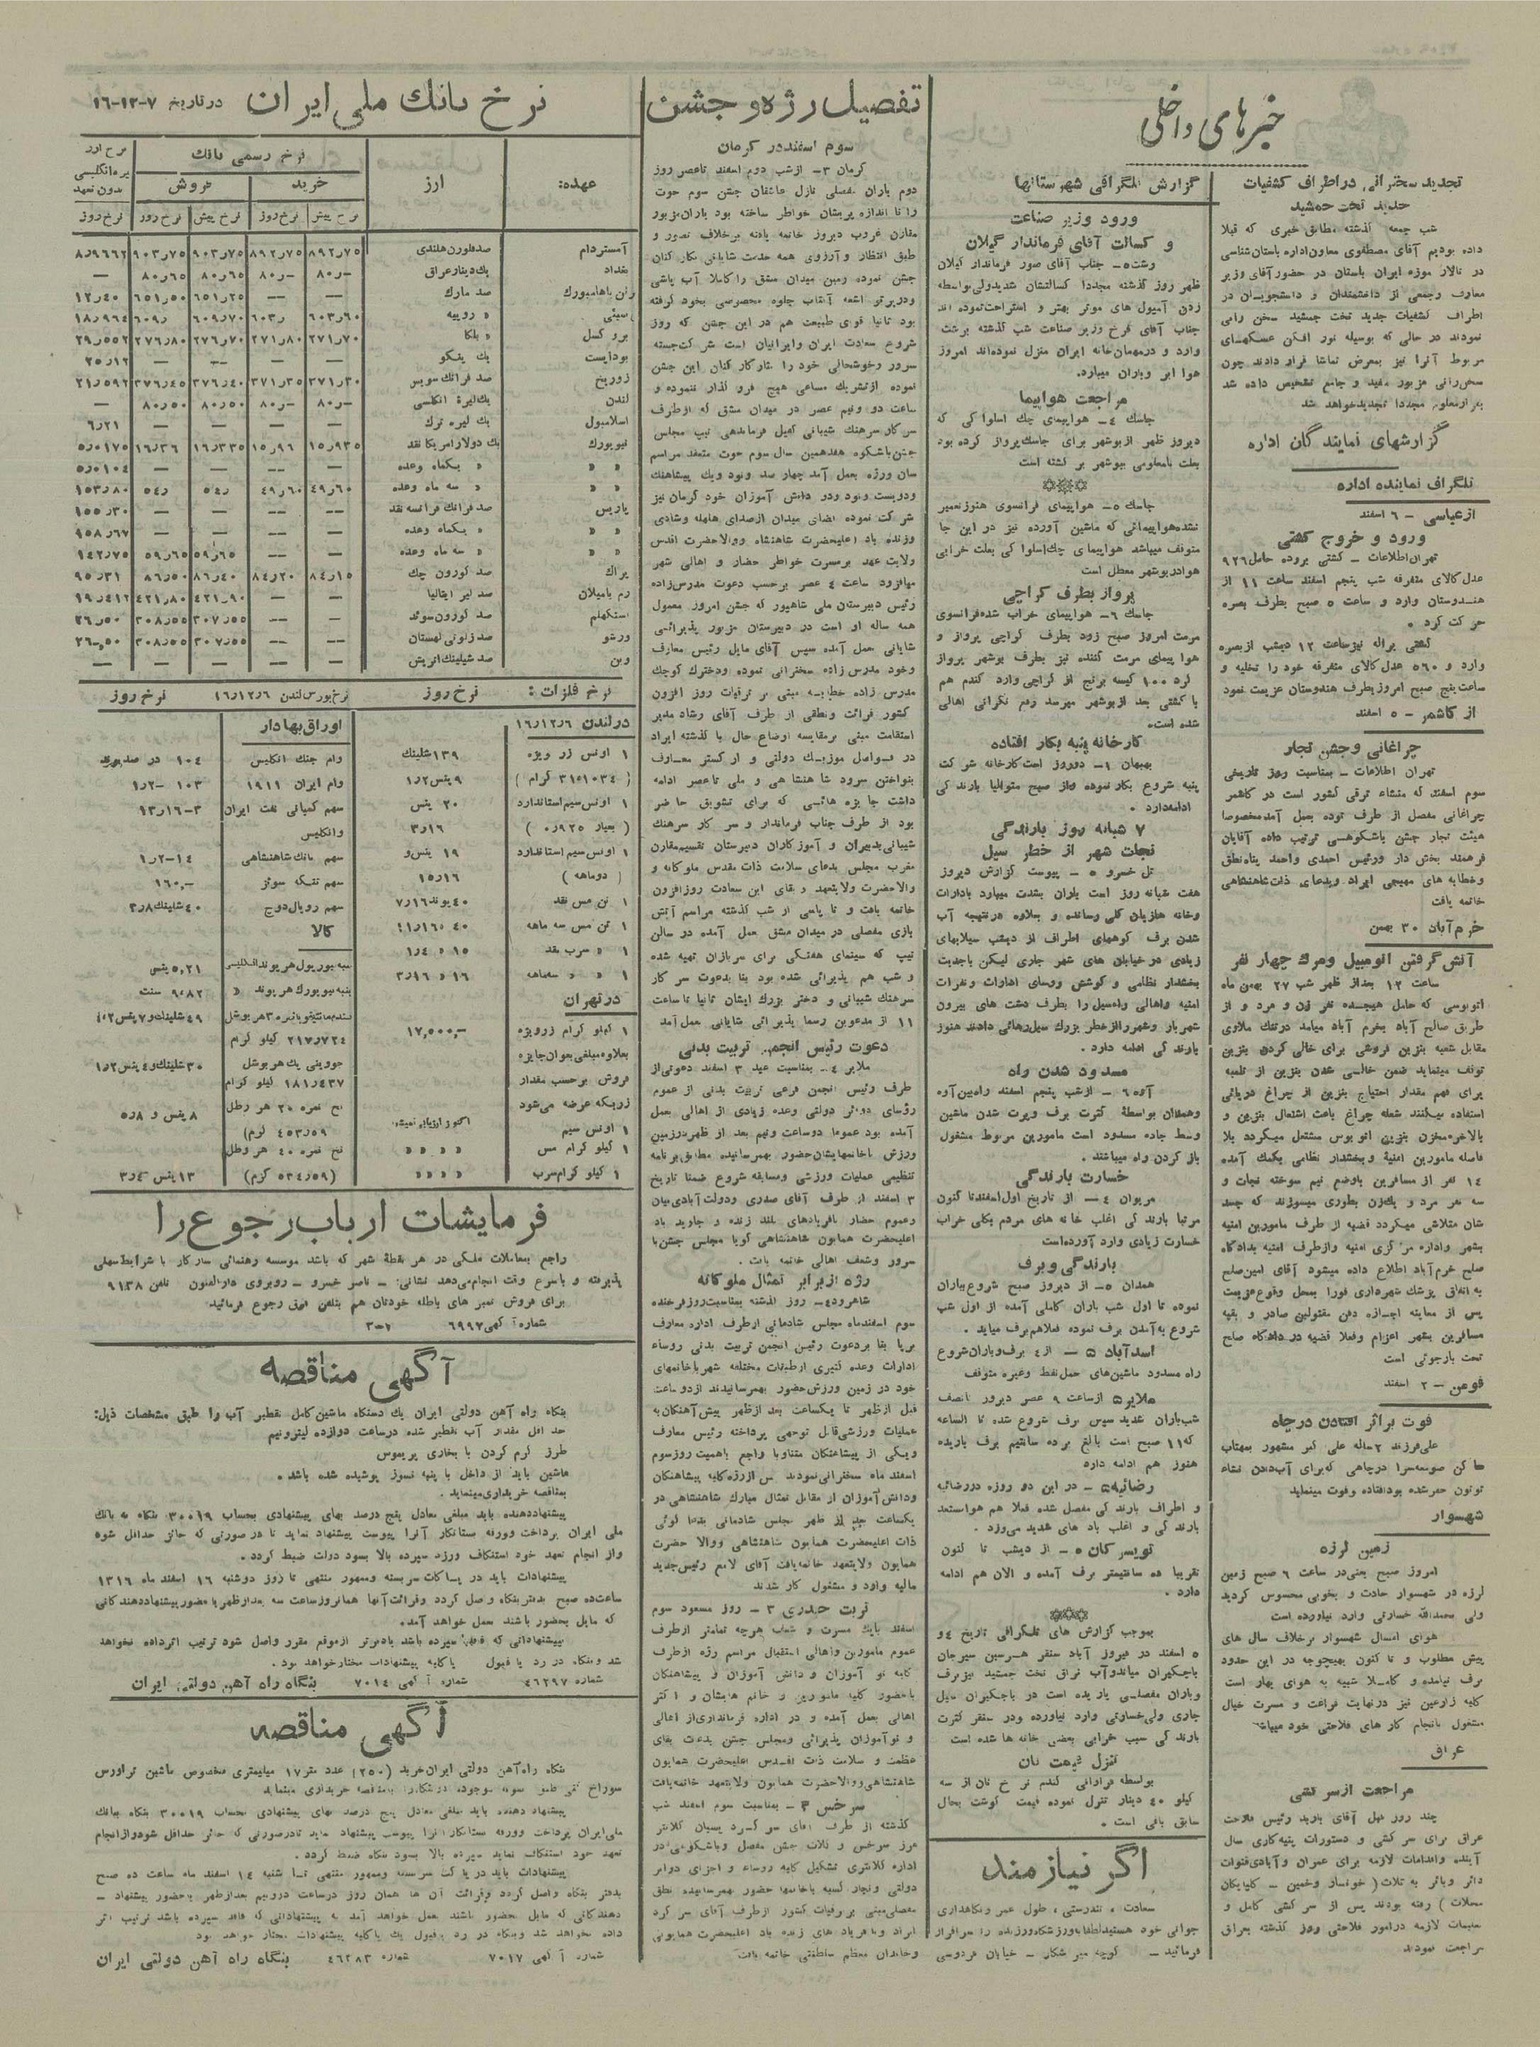 خبرهای داخلی
تجدید سخنرانی در اطراف کشفیات
جدید تخت جمشید
شب جمعه گذشته مطابق خبری که قبلا
داده بودیم آقای مصطفوی معاون اداره باستان شناسی
در تالار موزه ایران باستان در حضور آقای وزیر
معارف و جمعی از دانشمندان و دانشجویان در
اطراف کشفیات جدید تخت جمشید سخن رانی
نمودند در حالی که بوسیله نور افکن عکسهای
مربوط آنرا نیز بمعرض تماشا قرار دادند چون
سخنرانی مزبور مفید و جامع تشخیص داده شد
مجددا تجدید خواهد شد
گزارشهای نمایندگان اداره
تلگراف نماینده اداره
از عباسی - ٦ اسفند
ورود و خروج کشتی
تهران اطلاعات - کشتی بروده حامل ٩٢٦
عدل کالای متفرقه شب پنجم اسفند ساعت ١١ از
هندوستان وارد و ساعت ٥ صبح بطرف بصره
حرکت کرد .
کشتی براله نیز ساعت ١٢ دیشب از بصره
وارد و ٥٦٠ عدل کالای متفرقه خود را تخلیه و
ساعت پنج صبح امروز بطرف هندوستان عزیمت نمود
از کاشمر - ٥ اسفند
چراغانی و جشن تجار
تهران اطلاعات - بمناسبت روز تاریخی
سوم اسفند که منشاء ترقی کشور است در کاشمر
چراغانی مفصل از طرف توده بعمل آمد مخصوصا
هیئت تجار جشن باشکوهی ترتیب داده آقایان
فرهمند بخش دار و رئیس احمدی و احمد پناه نطق
و خطابه های مهیجی ایراد و بدعای ذات شاهنشاهی
خاتمه یافت
خرم آبان ٣٠ بهمن
آتش گرفتن اتومبیل و مرگ چهار نفر
ساعت ١٢ بعد از ظهر شب ٢٧ بهمن ماه
اتوبوسی که حامل هیجده نفر زن و مرد و از
طریق صالح آباد بخرم آباد میامد در تنگ ملاوی
مقابل شعبه بنزین فروشی برای خالی کردن بنزین
توقف مینماید ضمن خالی شدن بنزین از تلمبه
برای فهم مقدار احتیاج بنزین از چراغ دریائی
استفاده میکنند شعله چراغ باعث اشتعال بنزین و
بالاخره مخزن بنزین اتوبوس مشتعل میگردد بلا
فاصله مامورین امنیه و بخشدار نظامی بکمک آمده
١٤ نفر از مسافرین با وضع نیم سوخته نجات و
سه نفر مرد و یک زن بطوری میسوزند که جسد
شان متلاشی میگردد قضیه از طرف مامورین امنیه
بشهر و اداره مرکزی امنیه و از طرف امنیه بدادگاه
صلح خرم آباد اطلاع داده میشود آقای امین صلح
به اتفاق پزشک شهرداری فورا بمحل وقوع عزیمت
پس از معاینه اجازه دفن مقتولین صادر و بقیه
مسافرین بشهر اعزام و فعلا قضیه در دادگاه صلح
تحت بازجوئی است
فومن - ٢ اسفند
فوت براثر افتادن درچاه
علی فرزند ٢ ساله علی کبر مشهور بمهتاب
ساکن صومعه سرا در چاهی که برای آب دادن نشاء
توتون حفر شده بود افتاده و فوت مینماید
شهسوار
زمین لرزه
امروز صبح یعنی در ساعت ٦ صبح زمین
لرزه در شهسوار حادث و بخوبی محسوس گردید
ولی بحمدالله خسارتی وارد نیاورده است
هوای امسال شهسوار برخلاف سال های
پیش مطلوب و تا کنون بهیچوجه در این حدود
برف نیامده و کاملا شبیه به هوای بهار است
کلیه زارعین نیز در نهایت فراغت و مسرت خیال
مشغول بانجام کار های فلاحتی خود میباشند
عراق
مراجعت از سرکشی
چند روز قبل آقای بازید رئیس فلاحت
عراق برای سرکشی و دستورات پنبه کاری سال
آینده و اقدامات لازمه برای عمران و آبادی قنوات
دائر و بائر به ثلاث ( خونسار و خمین - گلپایگان
محلات ) رفته بودند پس از سرکشی کامل و
تعلیمات لازمه در امور فلاحتی روز گذشته بعراق
مراجعت نمودند
گزارش تلگرافی شهرستانها
ورود وزیر صناعت
و کسالت آقای فرماندار گیلان
رشت ٥- جناب آقای صور فرماندار گیلان
ظهر روز گذشته مجددا کسالتشان شدید ولی بواسطه
زدن آمپول های موثر بهتر و استراحت نموده اند
جناب آقای فرخ وزیر صناعت شب گذشته برشت
وارد و در مهمان خانه ایران منزل نموده اند امروز
هوا ابر و باران میبارد.
مراجعت هواپیما
جاسک ٤- هواپیمای چک اسلواکی که
دیروز ظهر از بوشهر برای جاسک پرواز کرده بود
بعلت نامعلومی ببوشهر برگشته است
جاسک ٥- هواپیمای فرانسوی هنوز تعمیر
نشده هواپیمائی که ماشین آورده نیز در این جا
متوقف میباشد هواپیمای چک اسلواکی بعلت خرابی
هوا در بوشهر معطل است
پرواز بطرف کراچی
جاسک ٦- هواپیمای خراب شده فرانسوی
مرمت امروز صبح زود بطرف کراچی پرواز و
هوا پیمای مرمت کننده نیز بطرف بوشهر پرواز
کرد ١٠٠ کیسه برنج از کراچی وارد گندم هم
با کشتی بعد از بوشهر میرسد رفع نگرانی اهالی
شده است.
کارخانه پنبه بکار افتاده
بهبهان ١- دو روز است کارخانه شرکت
پنبه شروع بکار نموده و از صبح متوالیا بارندگی
ادامه دارد .
٧ شبانه روز بارندگی
نجات شهر از خطر سیل
تل خسرو ٥ - پیوست گزارش دیروز
هفت شبانه روز است باران بشدت میبارد بادارات
و خانه ها زیان کلی رسانده و بعلاوه در نتیجه آب
شدن برف کوههای اطراف از دیشب سیلابهای
زیادی در خیابان های شهر جاری لیکن با جدیت
بخشدار نظامی و کوشش روسای ادارات و نفرات
امنیه و اهالی راه سیل را بطرف دشت های بیرون
شهر باز و شهر را از خطر بزرگ سیل رهائی دادند هنوز
بارندگی ادامه دارد .
مسدود شدن راه
آوه ٦ - از شب پنجم اسفند راه بین آوه
و همدان بواسطه کثرت برف و پرت شدن ماشین
وسط جاده مسدود است مامورین مربوط مشغول
باز کردن راه میباشند .
خسارت بارندگی
مریوان ٤ - از تاریخ اول اسفند تا کنون
مرتبا بارندگی اغلب خانه های مردم بکلی خراب
خسارت زیادی وارد آورده است
بارندگی و برف
همدان ٥- از دیروز صبح شروع بباران
نموده تا اول شب باران کاملی آمده از اول شب
شروع به آمدن برف نموده فعلا هم برف میاید .
اسدآباد ٥ - از ٤ برف و باران شروع
راه مسدود ماشین های حمل نفط و غیره متوقف
ملایر ٥ از ساعت ٩ عصر دیروز تا نصف
شب باران شدید سپس برف شروع شده تا الساعه
که ١١ صبح است بالغ بر ده سانتیم برف باریده
هنوز هم ادامه دارد
رضائیه ٥ - در این دو روزه در رضائیه
و اطراف بارندگی مفصل شده فعلا هم هوا مستعد
بارندگی و اغلب باد های شدید می وزد .
تویسرکان ٥ - از دیشب تا کنون
تقریبا ده سانتیمتر برف آمده و الان هم ادامه
دارد .
بموجب گزارش های تلگرافی تاریخ ٤ و
٥ اسفند در فیروز آباد سنقر هرسین سیرجان
باجگیران میاندوآب قراق تخت جمشید نیز برف
و باران مفصلی باریده است در باجگیران سیل
جاری ولی خسارتی وارد نیاورده و در سنقر کثرت
بارندگی سبب خرابی بعضی خانه ها شده است
تنزل قیمت نان
بواسطه فراوانی گندم نرخ نان از سه
کیلو ٤٠ دینار تنزل نموده قیمت گوشت بحال
سابق باقی است .
اگر نیازمند
سعادت ، تندرستی ، طول عمر و نگاهداری
جوانی خود هستید لطفا باورزشکار ورزنده را سرافراز
فرمائید - کوچه میر شکار - خیابان فردوسی
تفصیل رژه و جشن
سوم اسفند در کرمان
کرمان ٣- از شب دوم اسفند تا عصر روز
دوم باران مفصلی نازل عاشقان جشن سوم حوت
را تا اندازه پریشان خواطر ساخته بود باران مزبور
مقارن غروب دیروز خاتمه یافته برخلاف تصور و
طبق انتظار و آرزوی همه حدت شایانی بکار کنان
جشن نموده زمین میدان مشق را کاملا آب پاشی
و در پرتو اشعه آفتاب جلوه مخصوصی بخود گرفته
بود ثانیا قوای طبیعت هم در این جشن که روز
شروع سعادت ایران و ایرانیان است شرکت جسته
سرور و خوشحالی خود را نثار کار کنان این جشن
نموده از تشریک مساعی هیچ فرو گذار ننموده و
ساعت دو و نیم عصر در میدان مشق که از طرف
سرکار سرهنگ شیبانی کفیل فرماندهی تیپ مجلس
جشن باشکوه هفدهمین سال سوم حوت منعقد مراسم
سان و رژه بعمل آمد چهار صد و نود و یک پیشاهنگ
و دویست و نود و دو دانش آموزان خود کرمان نیز
شرکت نموده فضای میدان از صدای هلهله و شادی
و زنده باد اعلیحضرت شاهنشاه و والاحضرت اقدس
ولایت عهد بر مسرت خواطر حضار و اهالی شهر
میافزود ساعت ٤ عصر برحسب دعوت مدرس زاده
رئیس دبیرستان ملی شاهپور که جشن امروز معمول
همه ساله او است در دبیرستان مزبور پذیرائی
شایانی بعمل آمده سپس آقای مایل رئیس معارف
و خود مدرس زاده سخنرانی نموده و دخترک کوچک
مدرس زاده خطابه مبنی بر ترقیات روز افزون
کشور قرائت و نطقی از طرف آقای رشاد مدیر
استقامت مبنی بر مقایسه اوضاع حال با گذشته ایراد
در فواصل موزیک دولتی و ارکستر معارف
بنواختن سرود شاهنشاهی و ملی تا عصر ادامه
داشت جایزه هائی که برای تشویق حاضر
بود از طرف جناب فرماندار و سرکار سرهنگ
شیبانی بدبیران و آموزگاران دبیرستان تقسیم مقارن
مغرب مجلس بدعای سلامت ذات مقدس ملوکانه و
والاحضرت ولایتعهد و بقای این سعادت روز افزون
خاتمه یافت و تا پاسی از شب گذشته مراسم آتش
بازی مفصلی در میدان مشق بعمل آمده در سالن
تیپ که سینمای هفتگی برای سربازان تهیه شده
و شب هم پذیرائی شده بود بنا بدعوت سرکار
سرهنگ شیبانی و دختر بزرگ ایشان ثانیا تا ساعت
١١ از مدعوین رسما پذیرائی شایانی بعمل آمد
دعوت رئیس انجمن تربیت بدنی
ملایر ٤ - بمناسبت عید ٣ اسفند دعوتی از
طرف رئیس انجمن فرعی تربیت بدنی از عموم
رؤسای دوائر دولتی و عده زیادی از اهالی بعمل
آمده بود عموما دو ساعت و نیم بعد از ظهر در زمین
ورزش با خانمهایشان حضور بهمرسانیده مطابق برنامه
تنظیمی عملیات ورزشی و مسابقه شروع ضمنا تاریخ
٣ اسفند از طرف آقای صدری و دولت آبادی بیان
و عموم حضار با فریادهای بلند زنده و جاوید باد
اعلیحضرت همایون شاهنشاهی گویا مجلس جشن با
سرور و شعف اهالی خاتمه یافت .
رژه از برابر تمثال ملوکانه
شاهرود ٤- روز گذشته بمناسبت روز فرخنده
سوم اسفند ماه مجلس شادمانی از طرف اداره معارف
برپا بنا بر دعوت رئیس انجمن تربیت بدنی روساء
ادارات و عده کثیری از طبقات مختلفه شهر با خانمهای
خود در زمین ورزش حضور بهمرسانیدند از دو ساعت
قبل از ظهر تا یکساعت بعد از ظهر پیش آهنگان به
عملیات ورزشی قابل توجهی پرداخته رئیس معارف
و یکی از پیشاهنگان متناوبا راجع باهمیت روز سوم
اسفند ماه سخنرانی نمودند پس از رژه کلیه پیشاهنگان
و دانش آموزان از مقابل تمثال مبارک شاهنشاهی در
یکساعت بعد از ظهر مجلس شادمانی بدعا گوئی
ذات اعلیحضرت همایون شاهنشاهی و والا حضرت
همایون ولایتعهد خاتمه یافت آقای لامع رئیس جدید
مالیه وارد و مشغول کار شدند
تربت حیدری ٣ - روز مسعود سوم
اسفند بایک مسرت و شعف هرچه تمامتر از طرف
عموم مامورین و اهالی استقبال مراسم رژه از طرف
کلیه نو آموزان و دانش آموزان و پیشاهنگان
با حضور کلیه مامورین و خانم هایشان و اکثر
اهالی بعمل آمده و در اداره فرمانداری از اهالی
و نو آموزان پذیرائی و مجلس جشن بدعای بقای
عظمت و سلامت ذات اقدس اعلیحضرت همایون
شاهنشاهی و والاحضرت همایون ولایتعهد خاتمه یافت
سرخس ٣ - بمناسبت سوم اسفند شب
گذشته از طرف آقای سرگرد پسیان کلانتر
مرز سرخس و کلات جشن مفصل و باشکوهی در
اداره کلانتری تشکیل کلیه روساء و اجزای دوائر
دولتی و تجار کسبه با خانمها حضور بهمرسانیده نطق
مفصلی مبنی بر ترقیات کشور از طرف آقای سرگرد
ایراد و با فریاد های زنده باد اعلیحضرت همایونی
و خاندان معظم سلطنتی خاتمه یافت
نرخ بانک ملی ایران در تاریخ ٧-١٢-١٦
عهده: ارز نرخ رسمی بانک نرخ ارز غیر انگلیسی بدون تعهد
خرید فروش
نرخ پیش نرخ روز نرخ پیش نرخ روز نرخ روز
آمستردام صد فلورن هلندی ٨٩٢٫٧٥ ٨٩٢٫٧٥ ٩٠٣٫٧٥ ٩٠٣٫٧٥ ٨٫٩٦٦٢
بغداد یک دینار عراق ٨٠٫- ٨٠٫- ٨٠٫٦٥ ٨٠٫٦٥ —
برلن یا هامبورک صد مارک — — ٦٥١٫٢٥ ٦٥١٫٥٠ ١٢٫٤٠
بمبئی » روپیه ٦٠٣٫٦٠ ٦٠٣٫ ٦٠٩٫٧٠ ٦٠٩٫ ١٨٫٩٦٤
بروکسل » بلگا ٢٧١٫٧٠ ٢٧١٫٨٠ ٢٧٦٫٧٠ ٢٧٦٫٨٠ ٢٩٫٥٥٢
بوداپست یک پنگو — — — — ٢٥٫١٢
زوریخ صد فرانک سویس ٣٧١٫٣٠ ٣٧١٫٣٥ ٣٧٦٫٤٠ ٣٧٦٫٤٥ ٢١٫٥٩٢
لندن یک لیره انگلسی ٨٠٫- ٨٠٫- ٨٠٫٥٠ ٨٠٫٥٠ —
اسلامبول یک لیره ترک — — — — ٦٫٢١
نیویورک یک دولار امریکا نقد ١٥٫٩٣٥ ١٥٫٩٦ ١٦٫٣٣٥ ١٦٫٣٦ ٥٫٠١٧٥
» » » یکماه وعده — — — — ٥٫٠١٠٤
» » » سه ماه وعده ٤٩٫٦٠ ٤٩٫٦٠ ٥٤٫ ٥٤٫ ١٥٣٫٨٠
پاریس صد فرانک فرانسه نقد — — — — ١٥٥٫٣٠
» » » یکماه وعده — — — — ٩٥٨٫٦٧
» » » سه ماه وعده — — ٥٩٫٦٥ ٥٩٫٦٥ ١٤٢٫٧٥
پراگ صد کورون چک ٨٤٫١٥ ٨٤٫٢٠ ٨٦٫٤٠ ٨٦٫٥٠ ٩٥٫٣١
رم یا میلان صد لیر ایتالیا — — ٤٢١٫٩٠ ٤٢١٫٨٠ ١٩٫٤١٢
استکهلم صد کورون سوئد — — ٣٠٧٫٥٥ ٣٠٨٫٥٥ ٢٦٫٥٠
ورشو صد زلوتی لهستان — — ٣٠٧٫٥٥ ٣٠٨٫٥٥ ٢٦٫٠٥٠
وین صد شیلینک اتریش — — — — —
نرخ فلزات : نرخ روز
در لندن ١٦٫١٢٫٦
١ اونس زر ویژه ١٣٩ شلینک
( ٣١٫١٠٣٤ گرام ) ٩ پنس ١٫٢
١ اونس سیم استاندارد ٢٠ پنس
( بعیار ٠٫٩٢٥ ) ٣٫١٦
١ اونس سیم استاندارد ١٩ پنس و
( دوماهه ) ١٥٫١٦
١ تن مس نقد ٤٠ پوند ٧٫١٦
١ تن مس سه ماهه ٤٠ ١١٫١٦
١ » سرب نقد ١٥ ١٫٤
١ » » سه ماهه ١٦ ٣٫١٦
در تهران
١ کیلو گرام زر ویژه ١٧,٥٠٠,-
بعلاوه مبلغی بعنوان جایزه
فروش برحسب مقدار
زریکه عرضه می شود
١ اونس سیم اکنون ارزیابی نمیشود
١ کیلو گرام مس » » » »
١ کیلو گرام سرب » » » »
نرخ بورس لندن ١٦٫١٢٫٦ نرخ روز
اوراق بهادار
وام جنگ انگلیس ١٠٤ در صد پوند
وام ایران ١٩١١ ١٠٣ -١٫٢
سهم کمپانی نفت ایران و انگلیس ٣-١٣٫١٦
سهم بانک شاهنشاهی ١٤-١٫٢
سهم تنگه سوئز ١٦٠,-
سهم رویال دوچ ٤٠ شلینک ٣٫٨
کالا
پنبه لیورپول هر پوند انگلیسی ٥٫٢١ پنس
پنبه نیویورک هر پوند » ٩٫٨٢ سنت
گندم مانیتوبا نمره ٣ هر بوشل ٤٩ شلینک و ٧ پنس ١٫٢
٢١٧٫٧٢٤ کیلو گرام
جو وینی پک هر بوشل ٣٠ شلینک و ٤ پنس ١٫٢
١٨١٫٤٣٧ کیلو گرام
نخ نمره ٢٠ هر رطل ٨ پنس و ٥٫٨
( ٤٥٣٫٥٩ گرم )
نخ نمره ٤٠ هر رطل ١٣ پنس ٣٫٤
( ٥٣٤٫٥٩ گرم )
فرمایشات ارباب رجوع را
راجع بمعاملات ملکی در هر نقطه شهر که باشد موسسه رهنمائی سار کار با شرایط سهلی
پذیرفته و با اسرع وقت انجام می دهد نشانی: - ناصر خسرو - روبروی دارالفنون تلفن ٩١٣٨
برای فروش نمبر های باطله خودتان هم بتلفن فوق رجوع فرمائید
شماره آگهی ٦٩٩٢ ٢-٣
آگهی مناقصه
بنگاه راه آهن دولتی ایران یک دستگاه ماشین کامل تقطیر آب را طبق مشخصات ذیل:
حد اقل مقدار آب تقطیر شده در ساعت دوازده لیتر و نیم
طرز گرم کردن با بخاری پریموس
ماشین باید از داخل با پنبه نسوز پوشیده شده باشد.
بمناقصه خریداری مینماید .
پیشنهاد دهنده باید مبلغی معادل پنج درصد بهای پیشنهادی بحساب ٣٠٠١٩ بنگاه به بانک
ملی ایران پرداخت و ورقه ستانکار آنرا پیوست پیشنهاد نماید تا در صورتی که حائز حداقل شود
و از انجام تعهد خود استنکاف ورزد سپرده بالا بسود دولت ضبط گردد .
پیشنهادات باید در پاکات سربسته و ممهور منتهی تا روز دوشنبه ١٦ اسفند ماه ١٣١٦
ساعت ده صبح بدفتر بنگاه واصل گردد و قرائت آنها همانروز ساعت سه بعد از ظهر با حضور پیشنهاد دهندگانی
که مایل بحضور باشند بعمل خواهد آمد.
پیشنهاداتی که فاقد سپرده باشد یا دیرتر از موقع مقرر واصل شود ترتیب اثر داده نخواهد
شد و بنگاه در رد یا قبول یا کلیه پیشنهادات مختار خواهد بود .
شماره ٤٦٢٩٧ شماره آگهی ٧٠١٤ بنگاه راه آهن دولتی ایران
آگهی مناقصه
بنگاه راه آهن دولتی ایران خرید (٢٥٠) عدد مته ١٧ میلیمتری مخصوص ماشین تراورس
سوراخ کنی طبق نمونه موجوده در بنگاه را بمناقصه خریداری مینماید
پیشنهاد دهنده باید مبلغی معادل پنج درصد بهای پیشنهادی بحساب ٣٠٠١٩ بنگاه ببانک
ملی ایران پرداخت و ورقه ستانکار آنرا پیوست پیشنهاد نماید تا در صورتی که حائز حداقل شود و از انجام
تعهد خود استنکاف نماید سپرده بالا بسود بنگاه ضبط گردد .
پیشنهادات باید در پاکت سربسته و ممهور منتهی تا شنبه ١٤ اسفند ماه ساعت ده صبح
بدفتر بنگاه واصل گردد و قرائت آن ها همان روز در ساعت دو و نیم بعد از ظهر با حضور پیشنهاد -
دهندگانی که مایل بحضور باشند بعمل خواهد آمد به پیشنهاداتی که فاقد سپرده باشد ترتیب اثر
داده نخواهد شد و بنگاه در رد یا قبول یک یا کلیه پیشنهادات مختار خواهد بود
شماره آگهی ٧٠١٧ شماره ٤٦٢٨٣ بنگاه راه آهن دولتی ایران